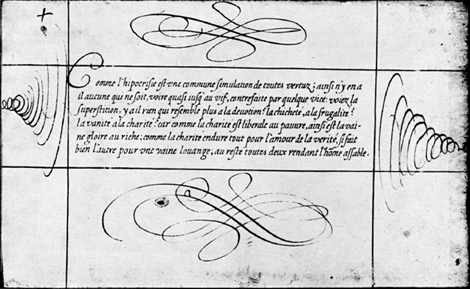 Comme l'hipocrisie est vne commune simulation de toutes vertuz; ainsi n'y en a
il aucune qui ne soit, voire quasi iusq au vif, contrefaite par quelque vice: voiez la
superstition; y a il rien qui resemble plus a la devotion? la chicheté, a la frugalité?
la vanité a la charité? car comme la charité est liberale au pauure, ainsi est la vai-
ne gloire au riche: comme la charité endure tout pour l'amour de la verité, si fait
bien l'autre pour vne vaine louange, au reste toutes deux rendant l'hōme affable.